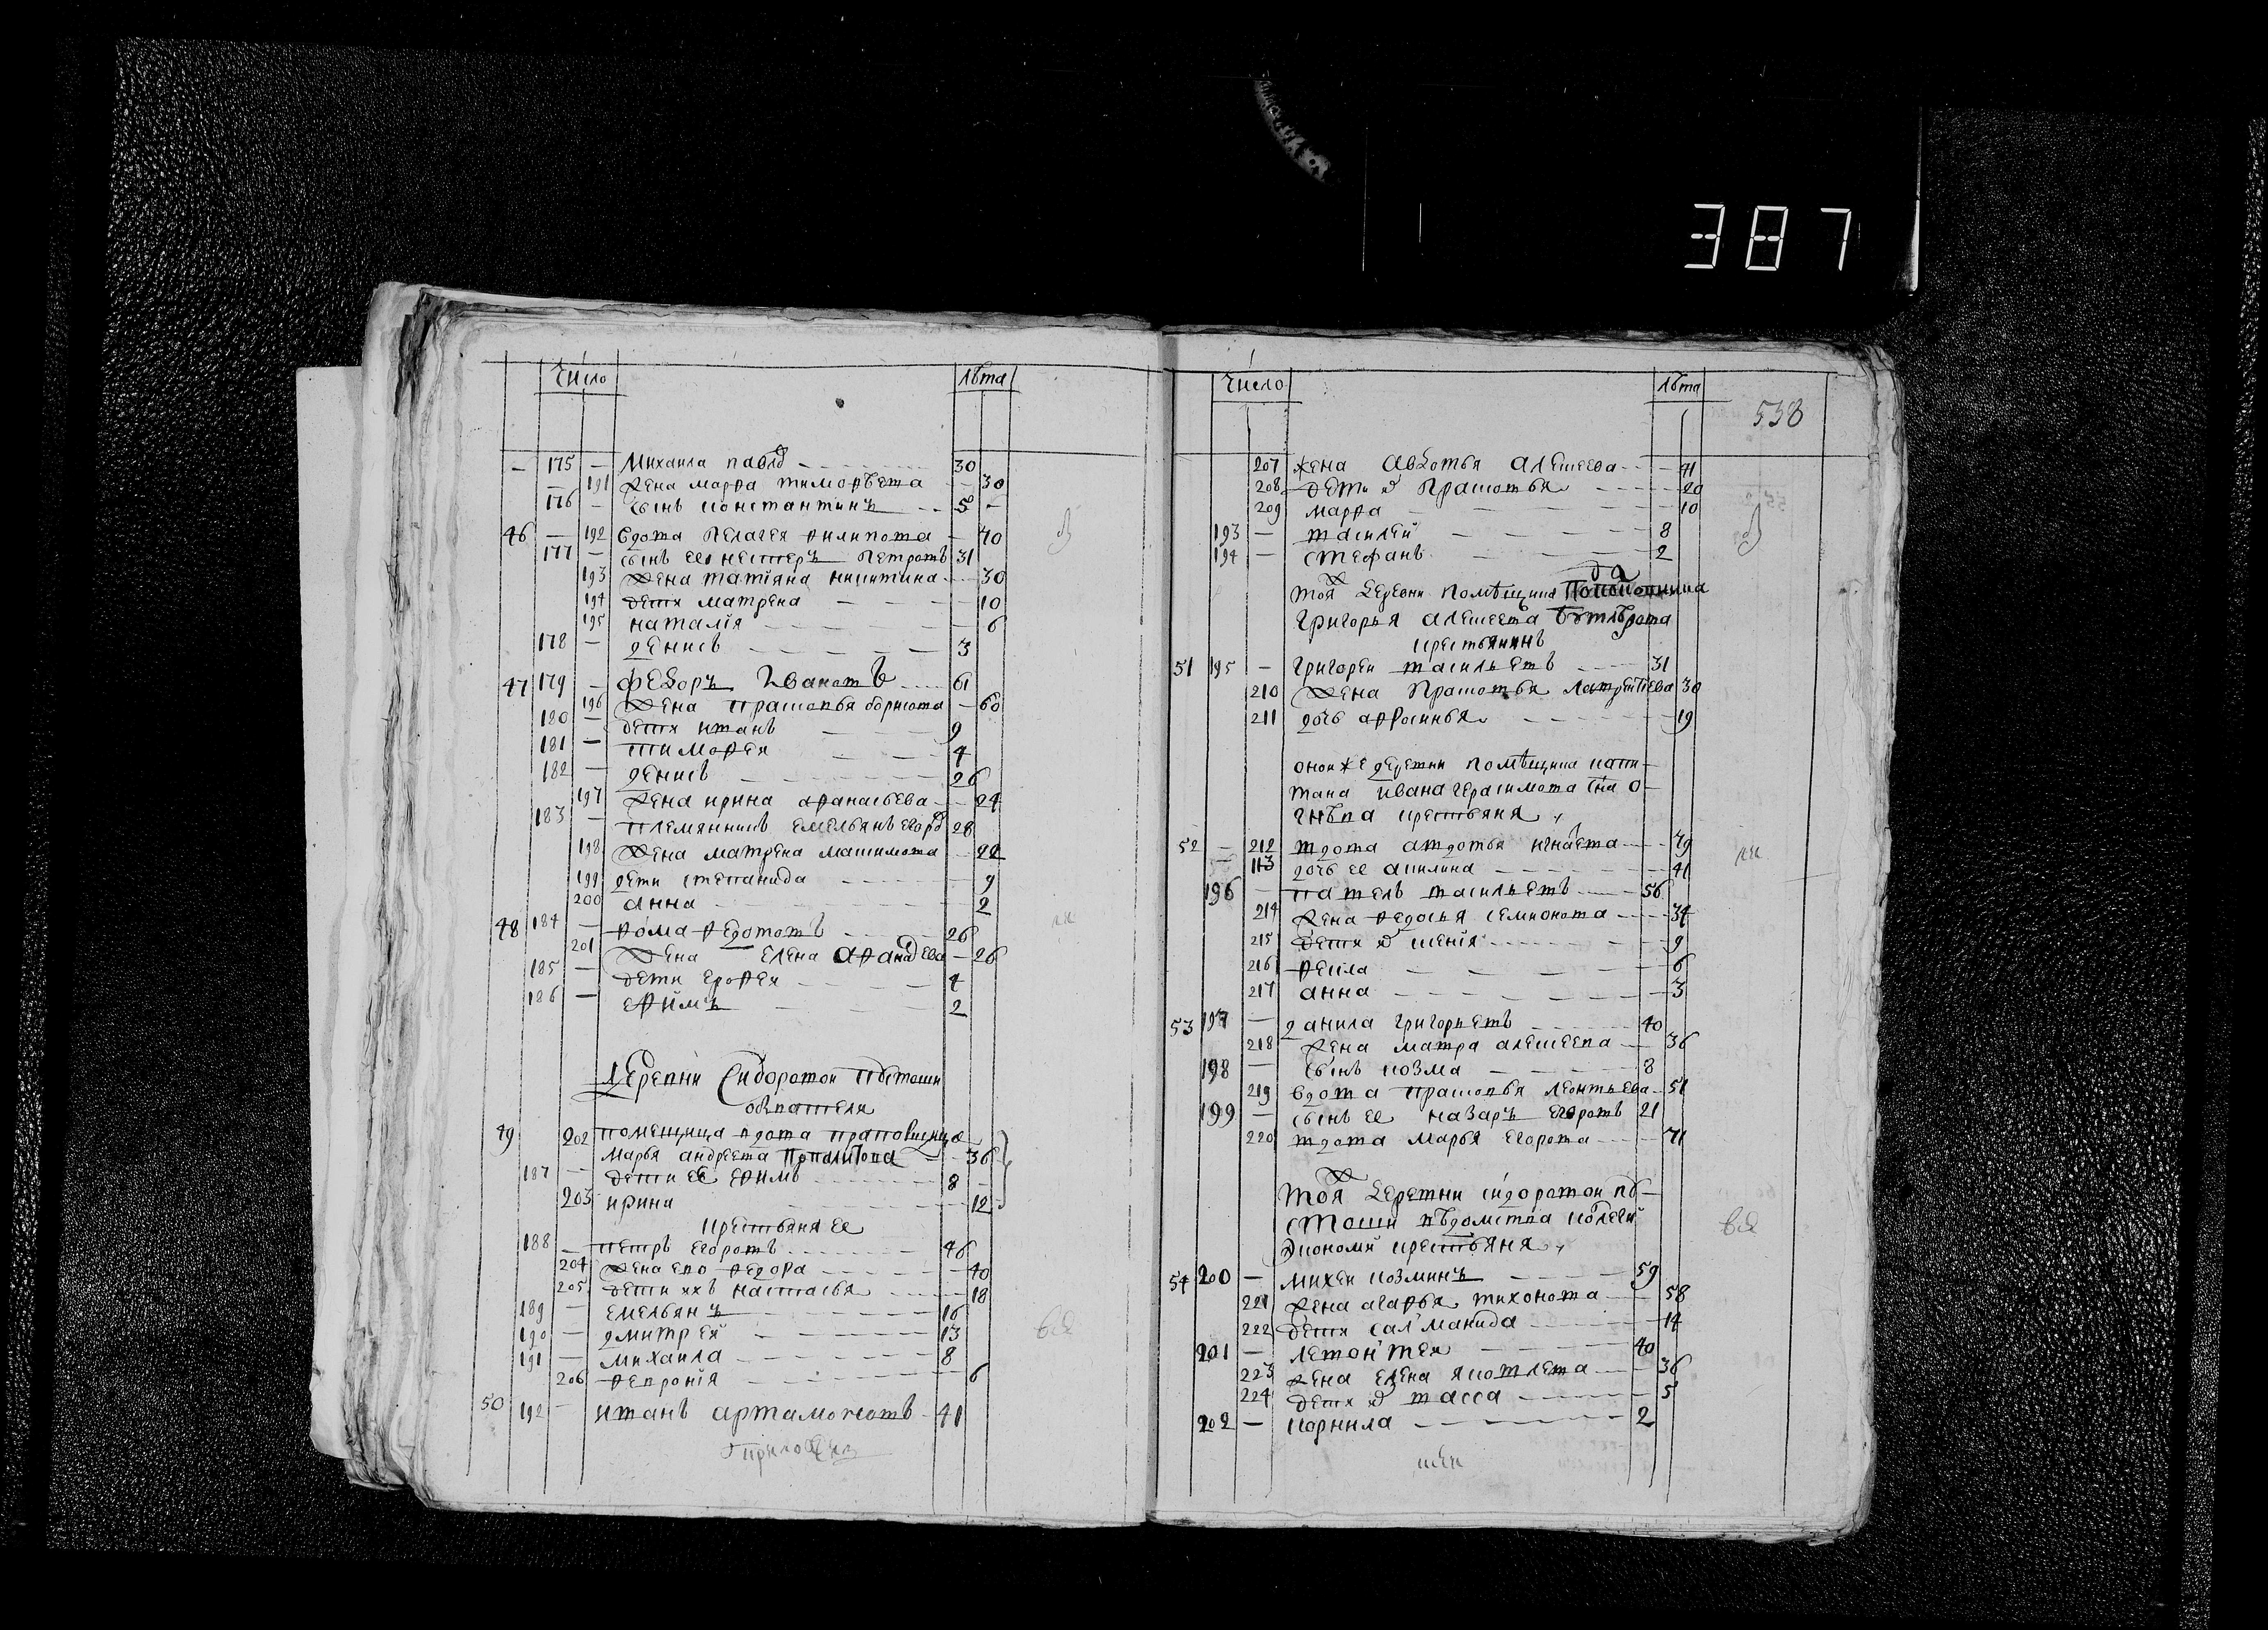 387
число лѣта
— 175 — Михаила павло 30
191 жена марфа тимофѣева 30
176 — сынъ константинъ 5 —
46 — 192 вдова пелагея филипова 40
177 — сынъ ее нестеръ петровъ 31
193 жена татіяна никитина 30
194 дети матрена 10
195 наталія 6
178 — денисъ 3
47 179 — Федоръ Ивановъ 61
196 жена прасковья борисова 60
180 — дети иванъ 9
181 — тимофеи 4
182 — денисъ 26
197 жена ирина афанасьева 24
183 — племянникъ емельянъ егоро 28
198 жена матрена максимова 22
199 дети степанида 9
200 анна 2
48 184 — фома федотовъ 26
201 жена елена афанасева 26
185 — дети ерофеи 4
186 — ефимъ 2
Деревни Сидоровои пустоши
обыватели
49 202 помещица вдова прапорщица
марья андреева 36
187 — дети ее ефимъ 8
203 ирина 12
крестьяня ее
188 — петръ егоровъ 46
204 жена ево федора 40
205 дети ихъ настасья 18
189 — емельянъ 16
190 — дмитреи 13
191 — михаила 8
206 февронія 6
50 192 — иванъ артамоновъ 41
число лѣта
538
207 жена авдотья алексеева 41
208 дети их прасковья 20
209 марфа 10
193 — василеи 8
194 — стефанъ 2
Тоя деревни помѣщика
григорья алексеева
крестьянинъ
51 195 — григореи васильевъ 31
210 жена прасковья лаврентіева 30
211 дочь афросинья 19
онои же деревни помѣщика капи-
тана ивана герасимова сна о-
гнѣва крестьяня
52 — 212 вдова авдотья игнаева 79
— 113 дочь ее акилина 41
196 — павелъ васильевъ 56
214 жена федосья семионова 34
215 дети их ксенія 9
216 фекла 6
217 анна 3
53 197 — данила григорьевъ 40
218 жена мавра алексеева 36
198 — сынъ козма 8
219 вдова прасковья леонтьева 51
199 — сынъ ее назаръ егоровъ 21
220 вдова марья егорова 71
Тоя деревни сидоровои пу-
стоши вѣдомства колеги
экономи крестьяня
54 200 — михеи козминъ 59
221 жена агафья тихонова 58
222 дети саломанида 14
201 — левонтеи 40
223 жена елена яковлева 36
224 дети их васса 5
202 — корнила 2